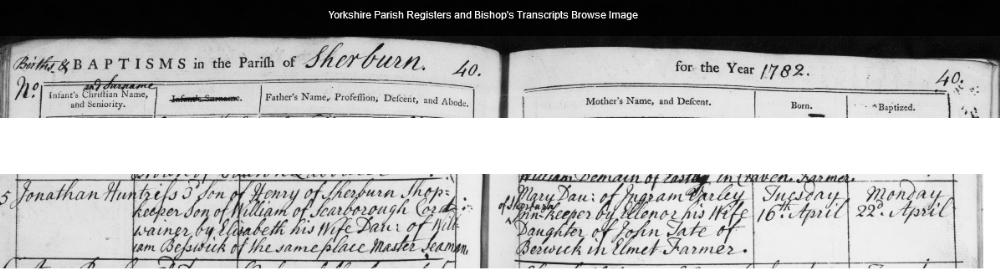 Yorkshire Parish Registers and Bishop's Transcripts Browse Image
Births & BAPTISMS in the Parish of Sherburn. 40.
for the Year 1782. 40.
No. Infant's Christian Name, and Surname
and Seniority.
Infant's Surname.
Father's Name, Profession, Descent, and Abode.
Mother's Name, and Descent.
Born.
Baptized.
William Demain of in Craven. Farmer.
5 Jonathan Huntriss 3d Son of Henry of Sherburn Shop-
keeper Son of William of Scarborough Cord-
wainer by Elisabeth his Wife Daur: of Will-
iam Beswick of the same place Master Seaman.
Mary Daur: of Ingram Varley
of Sherburn Inn-keeper by Elenor his Wife
Daughter of John Tate of
Berwick in Elmet Farmer.
Tuesday
16th April
Monday
22d April